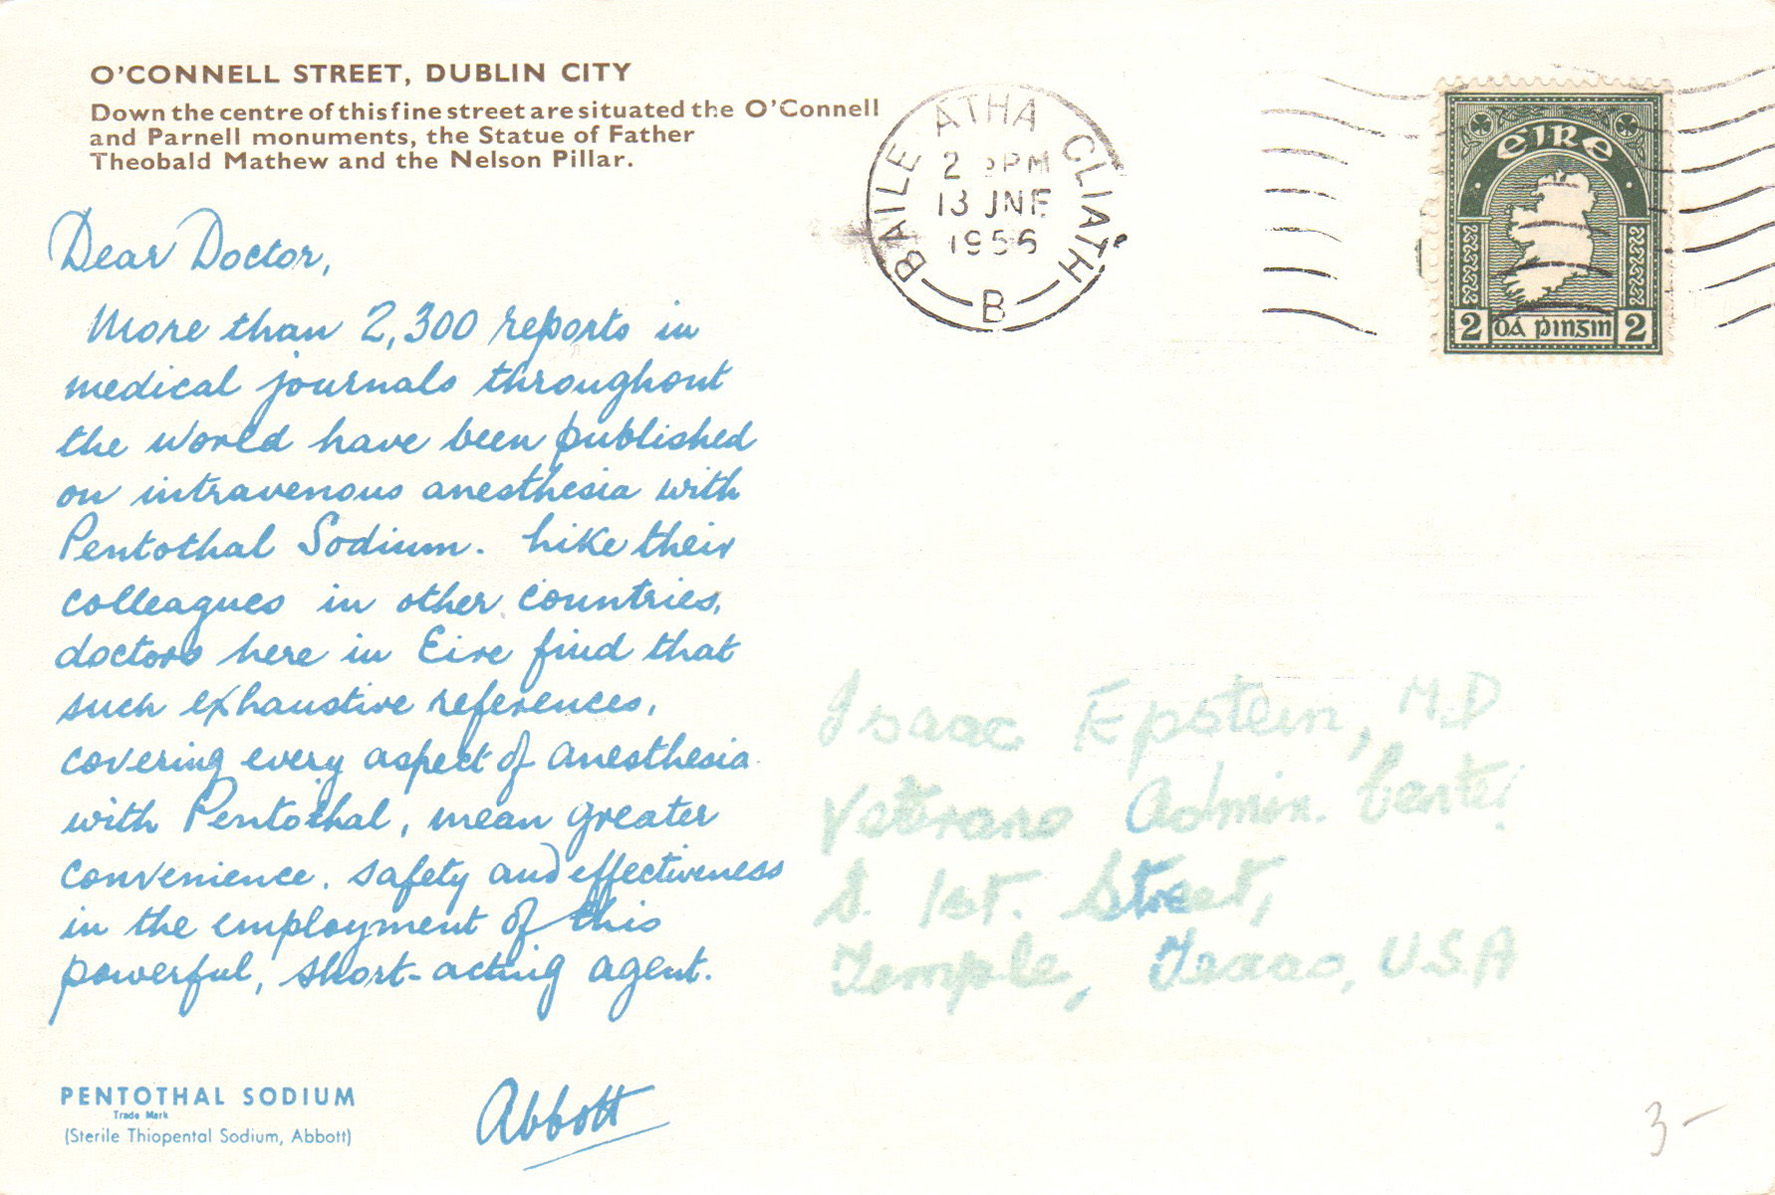 O'CONNELL STREET, DUBLIN CITY
Down the centre of this fine street are situated the O'Connell
and Parnell monuments, the Statue of Father
Theobald Mathew and the Nelson Pillar.
BAILE ATHA CLIATH
2 PM
13 JNE
1956
B
éire
2 Dá pingin 2
Dear Doctor,
More than 2,300 reports in
medical journals throughout
the world have been published
on intravenous anesthesia with
Pentothal Sodium. Like their
colleagues in other countries,
doctors here in Eire find that
such exhaustive references,
covering every aspect of anesthesia
with Pentothal, mean greater
convenience, safety and effectiveness
in the employment of this
powerful, short-acting agent.
Abbott
PENTOTHAL SODIUM
Trade Mark
(Sterile Thiopental Sodium, Abbott)
Isaac Epstein, M.D
Veterans Admin. Center
S. 1st. Street,
Temple, Texas, U.S.A
3-